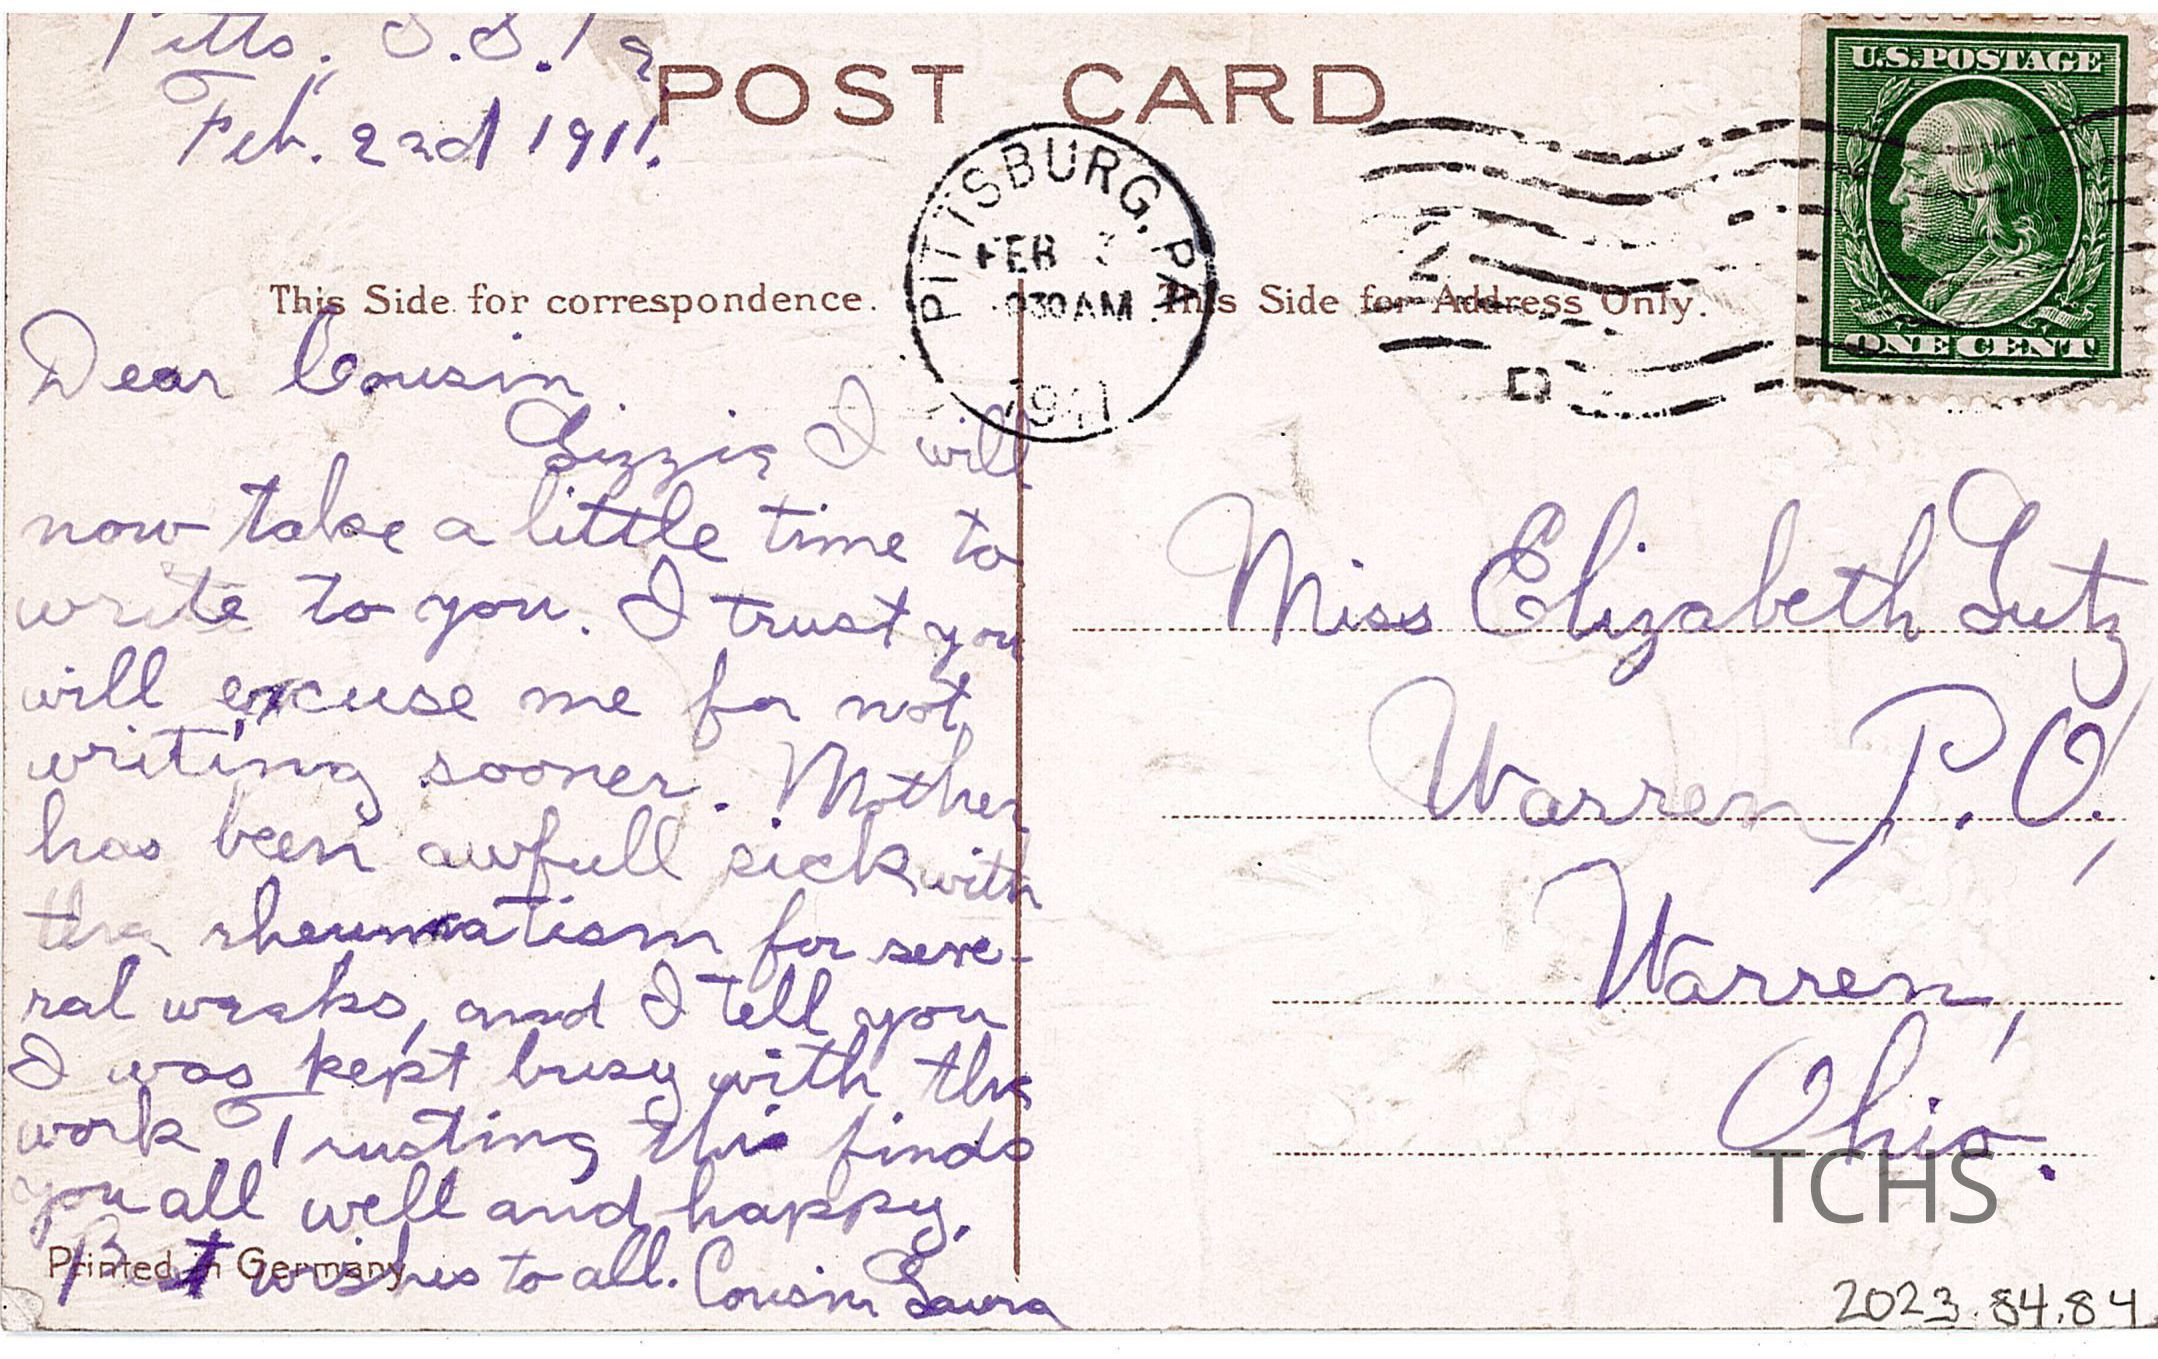 Pitts. S.S. Pa
Feb. 22nd 1911.
POST CARD
U.S. POSTAGE
ONE CENT
PITTSBURG, PA.
FEB
930 AM
1911
D
This Side for correspondence.
This Side for Address Only.
Dear Cousin
Lizzie I will
now take a little time to
write to you. I trust you
will excuse me for not
writing sooner. Mother
has been awfull sick with
the rheumatism for seve-
ral weeks, and I tell you
I was kept busy with the
work. Trusting this finds
you all well and happy.
Best wishes to all. Cousin Laura
Printed in Germany
Miss Elizabeth Lutz
Warren P.O.,
Warren,
Ohio.
TCHS
2023.84.84